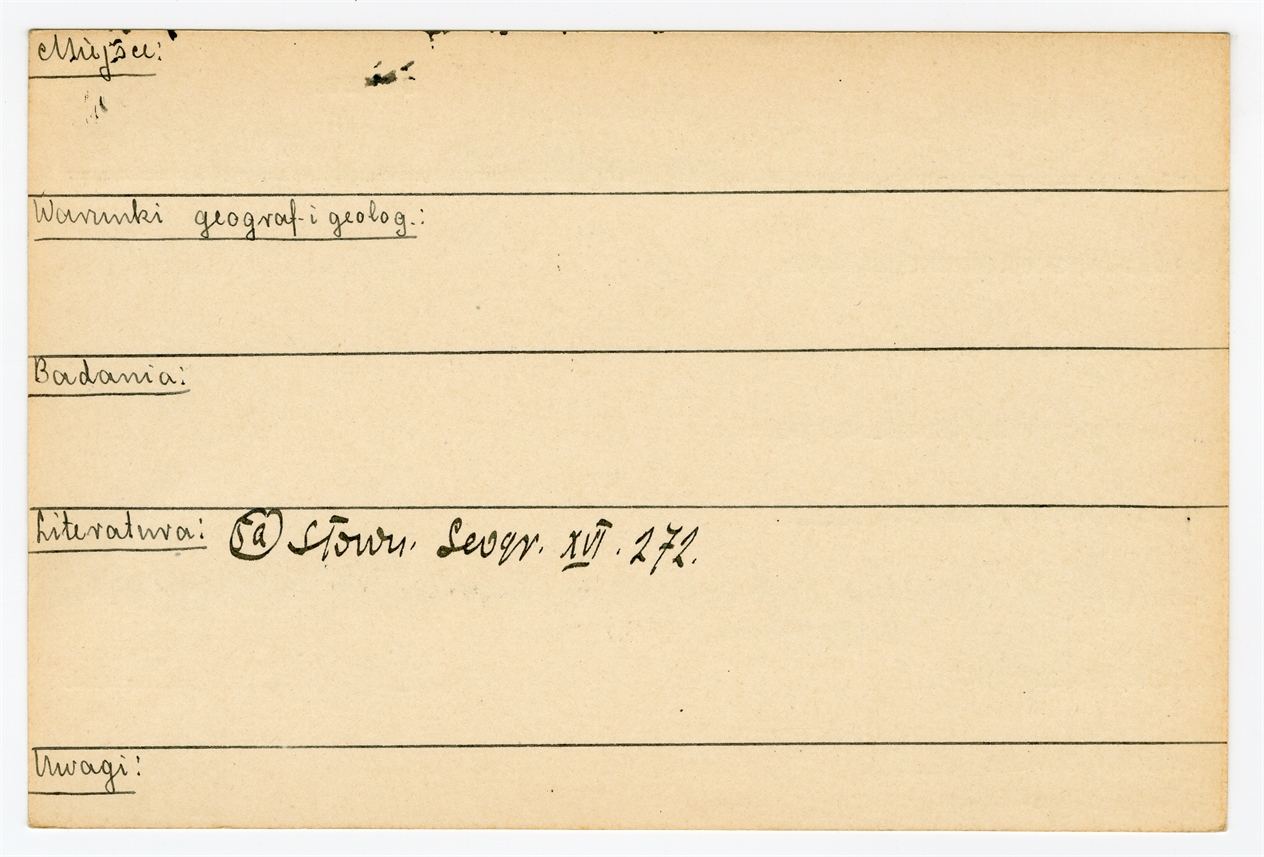 Miejsce:
Warunki geograf. i geolog.:
Badania:
Literatura: 5a Słown. Geogr. XVI. 272.
Uwagi: